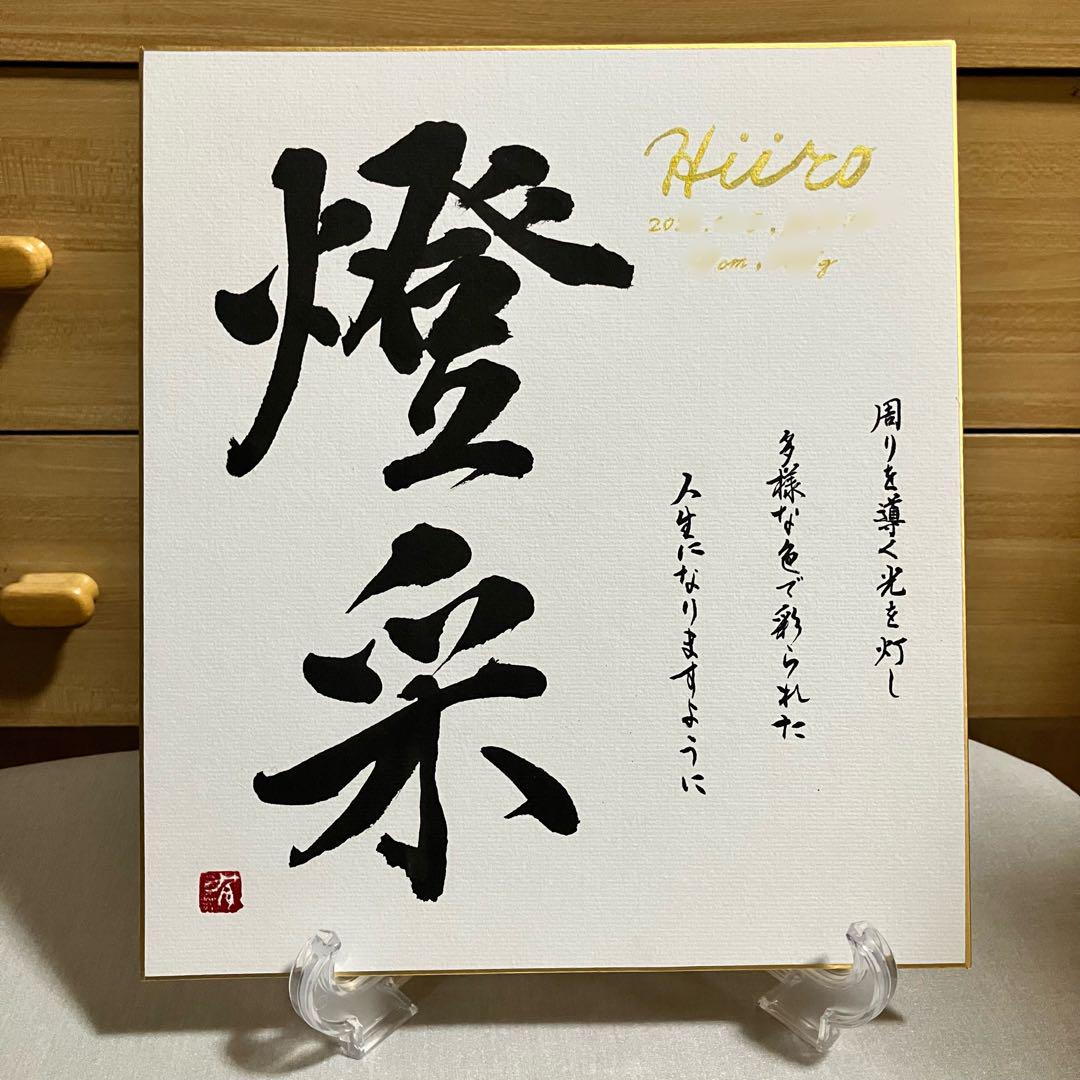 燈采
Hiiro
20
om, g
周りを導く光を灯し
多様な色で彩られた
人生になりますように